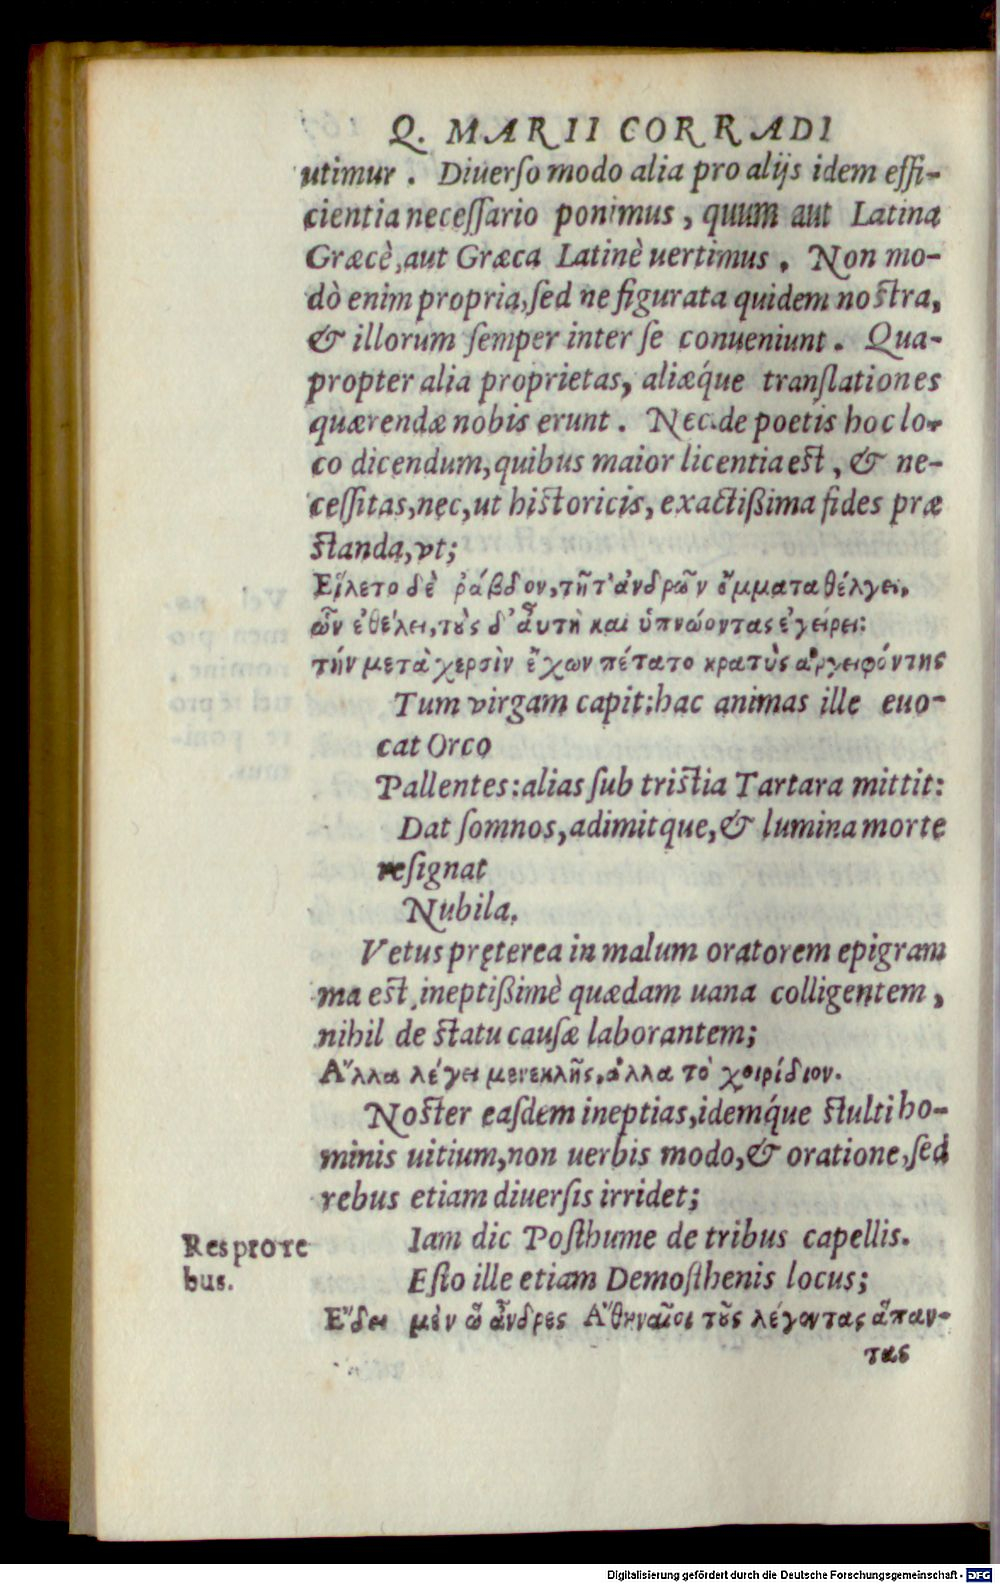 Q. MARII CORRADI
utimur. Diuerso modo alia pro alijs idem effi-
cientia necessario ponimus, quum aut Latina
Græcè, aut Græca Latinè uertimus. Non mo-
dò enim propria, sed ne figurata quidem nostra,
& illorum semper inter se conueniunt. Qua-
propter alia proprietas, aliæq́ue translationes
quærendæ nobis erunt. Nec de poetis hoc lo-
co dicendum, quibus maior licentia est, & ne-
cessitas, nec, ut historicis, exactißima fides præ
standa, vt;
Εἵλετο δὲ ῥάβδον, τῇ τ' ἀνδρῶν ὄμματα θέλγει,
ὧν ἐθέλει, τοὺς δ' αὖτε καὶ ὑπνώοντας ἐγείρει:
τήν μετὰ χερσὶν ἔχων πέτατο κρατὺς ἀργειφόντης
Tum virgam capit: hac animas ille euo-
cat Orco
Pallentes: alias sub tristia Tartara mittit:
Dat somnos, adimitque, & lumina morte
resignat
Nubila.
Vetus pręterea in malum oratorem epigram
ma est, ineptißimè quædam uana colligentem,
nihil de statu causæ laborantem;
Ἄλλα λέγει μενεκλῆς, ἄλλα τὸ χοιρίδιον.
Noster easdem ineptias, idemq́ue stulti ho-
minis uitium, non uerbis modo, & oratione, sed
rebus etiam diuersis irridet;
Iam dic Posthume de tribus capellis.
Res pro re
bus.
Esto ille etiam Demosthenis locus;
Ἔδει μὲν ὦ ἄνδρες Ἀθηναῖοι τοὺς λέγοντας ἅπαν-
τας
Digitalisierung gefördert durch die Deutsche Forschungsgemeinschaft - DFG